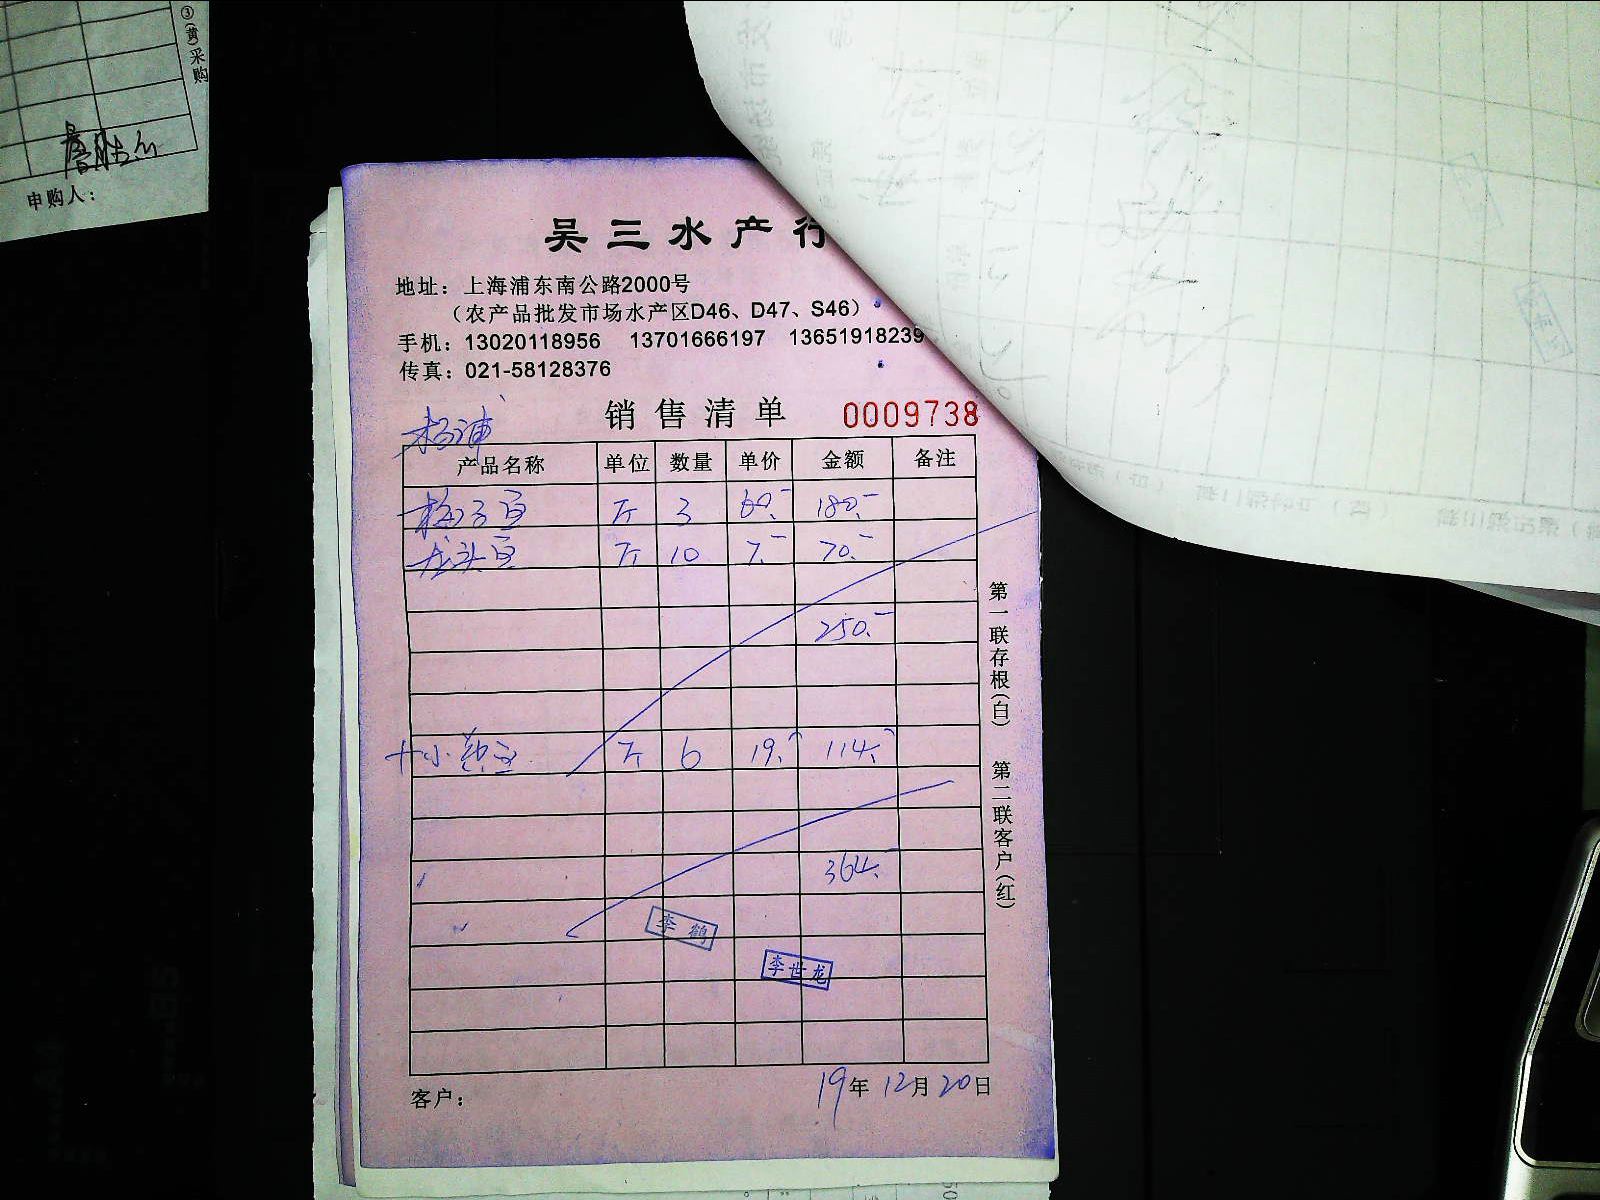 ③(黄)采购
申购人：
吴三水产行
地址：上海浦东南公路2000号
（农产品批发市场水产区D46、D47、S46）
手机：13020118956 13701666197 13651918239
传真：021-58128376
杨浦
销售清单 0009738
产品名称 单位 数量 单价 金额 备注
梅子鱼 斤 3 60.- 180.-
龙头鱼 斤 10 7.- 70.-
250.-
+小黄鱼 斤 6 19.- 114.-
364.-
李鹤
李世龙
第一联存根(白) 第二联客户(红)
客户： 19年12月20日